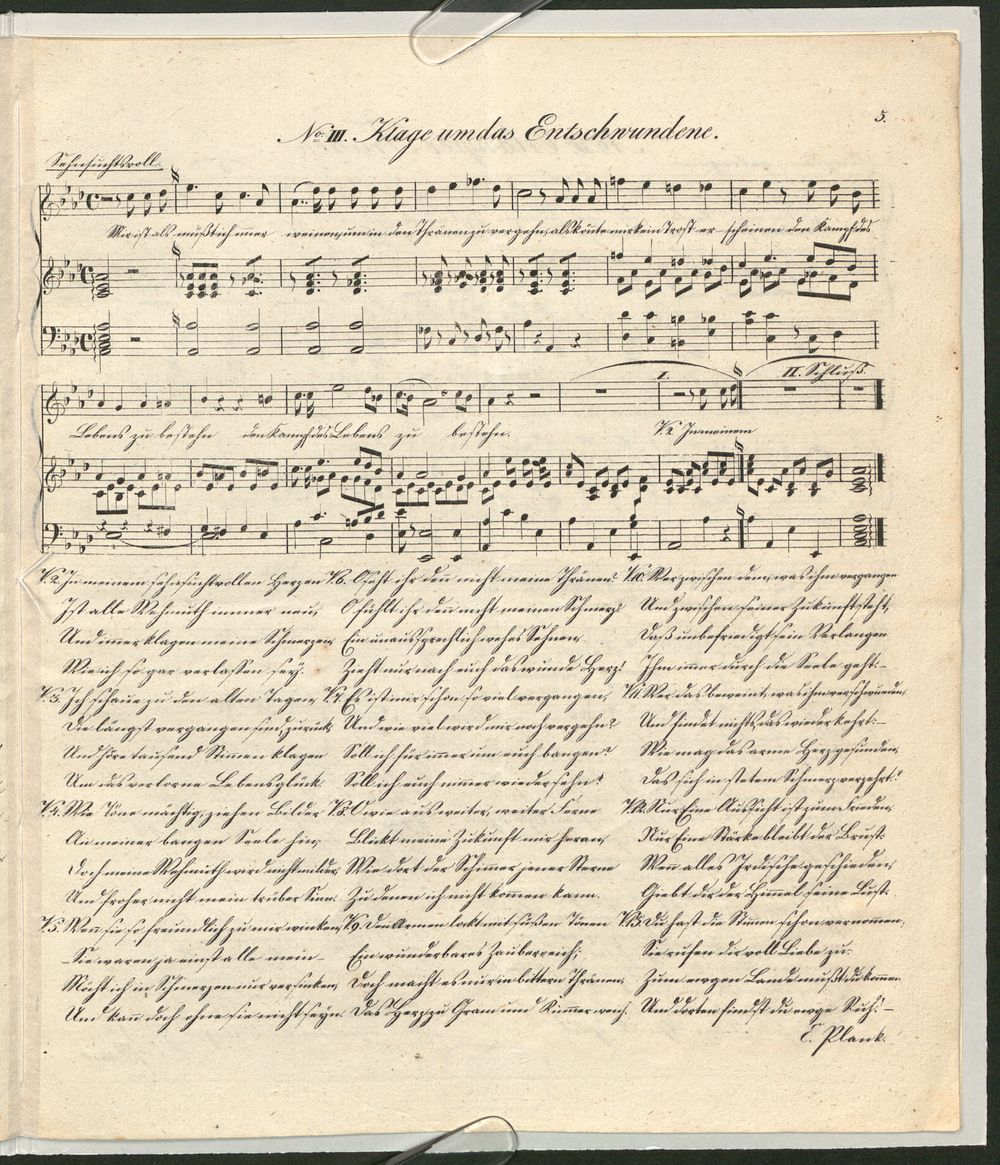 5.
No. III. Klage um das Entschwundene.
Sehnsuchtsvoll.
Mir ist als müßt ich imer weinen, um in den Thränen zu vergehn, als könte mir kein Trost erscheinen den Kampf des
II. Schluß.
I.
Lebens zu bestehn den Kampf des Lebens zu bestehn. V. 2. In meinem
V. 2. In meinem sehnsuchtvollen Herzen
Ist alle Wehmuth immer neu;
Und imer klagen meine Schmerzen,
Wie ich so gar verlassen sey.
V. 3. Ich schaue zu den alten Tagen,
Die längst vergangen sind, zurück,
Und höre tausend Stimen klagen
Um das verlorne Lebensglück.
V. 4. Wie Töne mächtig, ziehen Bilder
An meiner bangen Seele hin;
Doch meine Wehmuth wird nicht milder
Und froher nicht mein trüber Sinn.
V. 5. Wen sie so freundlich zu mir winken,
Sie waren ja einst alle mein –
Möcht ich in Schmerzen nur versinken,
Und kañ doch ohne sie nicht seyn.
V. 6. O seht ihr den nicht meine Thränen?
O fühlt ihr den nicht meinen Schmerz?
Ein unaussprechlich wehes Sehnen,
Zieht nur nach euch das wunde Herz!
V. 7. Es ist mir schon so viel vergangen,
Und wie viel wird mir noch vergehn?
Soll ich für immer um euch bangen?
Soll ich euch nimer wiedersehn?
V. 8. O wie aus weiter, weiter Ferne
Blinkt meine Zukunft mir heran,
Wie dort der Schimmer jener Sterne
Zu denen ich nicht kommen kann.
V. 9. Den Armen lockt mit süßen Tönen
Ein wunderbares Zauberreich;
Doch macht es nur in bittern Thränen,
Das Herz zu Gram und Kummer weich.
V. 10. Wer zwischen dem, was ihm vergangen
Und zwischen seiner Zukunft steht,
Daß unbefriedigt sein Verlangen
Ihm imer durch die Seele geht: –
V. 11. Wer das beweint, was ihm verschwunden,
Und findet nichts, das wieder kehrt: –
Wie mag das arme Herz gesunden,
Das sich in stetem Schmerz verzehrt?
V. 12. Nur Eine Aussicht ist zum Frieden,
Nur Eine Stärke bleibt der Brust:
Wen alles Irdische geschieden,
Giebt dir der Himel seine Lust.
V. 13. Du hast die Stimen schon vernommen,
Sie rufen dir voll Liebe zu:
Zum ewgen Lande mußt du kommen
Und dorten findst du ewge Ruh! –
E. Plank.